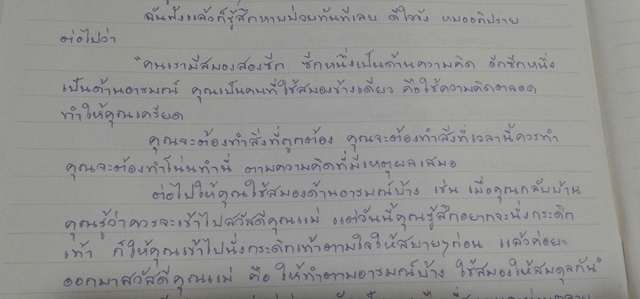 ฉันฟังแล้วก็รู้สึกหายป่วยทันทีเลย ดีใจจัง หมออภิปราย
ต่อไปว่า
"คนเรามีสมองสองซีก ซีกหนึ่งเป็นด้านความคิด อีกซีกหนึ่ง
เป็นด้านอารมณ์ คุณเป็นคนที่ใช้สมองข้างเดียว คือใช้ความคิดตลอด
ทำให้คุณเครียด
คุณจะต้องทำสิ่งที่ถูกต้อง คุณจะต้องทำสิ่งที่เวลานี้ควรทำ
คุณจะต้องทำโน่นทำนี่ ตามความคิดที่มีเหตุผลเสมอ
ต่อไปให้คุณใช้สมองด้านอารมณ์บ้าง เช่น เมื่อคุณกลับบ้าน
คุณรู้ว่าควรจะเข้าไปสวัสดีคุณแม่ แต่วันนี้คุณรู้สึกอยากจะนั่งกระดิก
เท้า ก็ให้คุณเข้าไปนั่งกระดิกเท้าตามใจให้สบายๆก่อน แล้วค่อย
ออกมาสวัสดีคุณแม่ คือ ให้ทำตามอารมณ์บ้าง ใช้สมองให้สมดุลกัน"